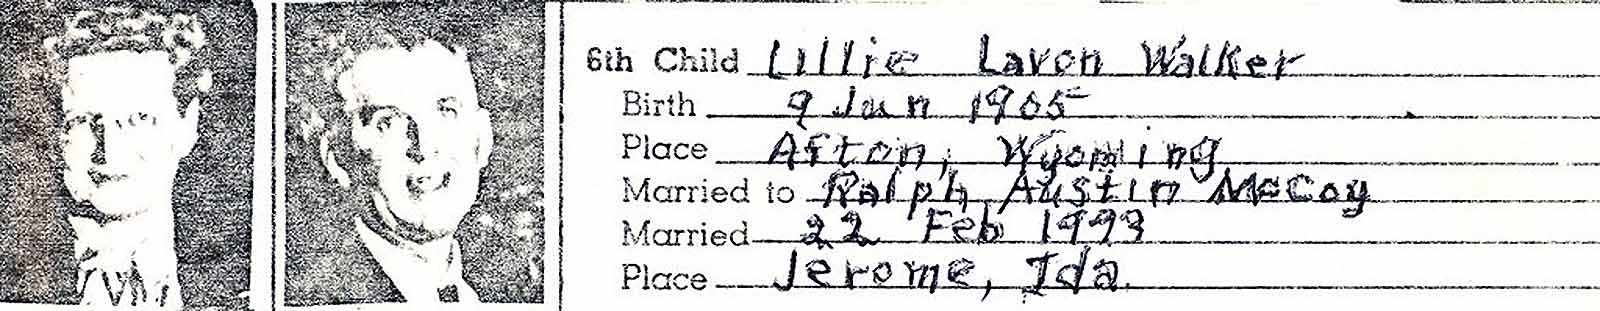 6th Child Lillie Lavon Walker
Birth 9 Jan 1905
Place Afton, Wyoming
Married to Ralph Austin McCoy
Married 22 Feb
Place Jerome, Ida.